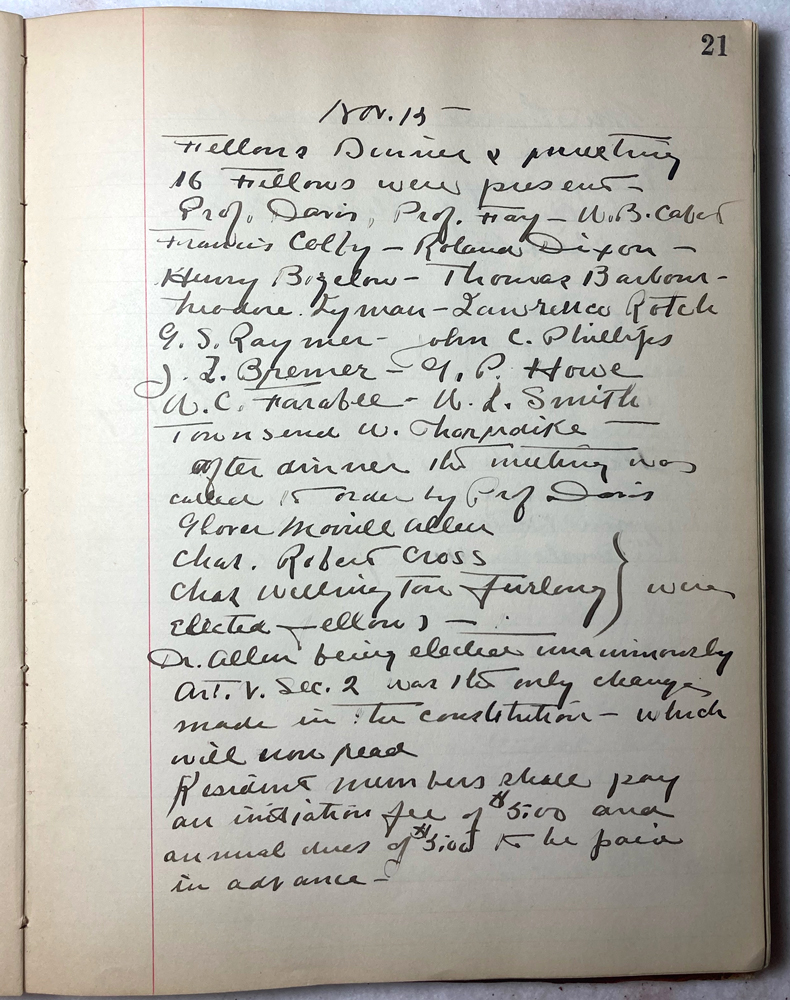 21
Nov. 15 —
Fellows Dinner & meeting
16 Fellows were present —
Prof. Davis, Prof. Fay — W. B. Cabot
Francis Colby — Roland Dixon —
Henry Bigelow — Thomas Barbour —
Theodore Lyman — Lawrence Rotch
G. S. Raymer — John C. Phillips
J. L. Bremer — G. P. Howe
W. C. Farabee — W. L. Smith
Townsend W. Thorndike —
After dinner the meeting was
called to order by Prof Davis
Glover Morrill Allen
Chas. Robert Cross
Chas Wellington Furlong } were
elected Fellows —
Dr. Allen being elected unanimously
Art. V. Sec. 2 was the only change
made in the constitution — which
will now read
Resident members shall pay
an initiation fee of $5.00 and
annual dues of $5.00 to be paid
in advance —